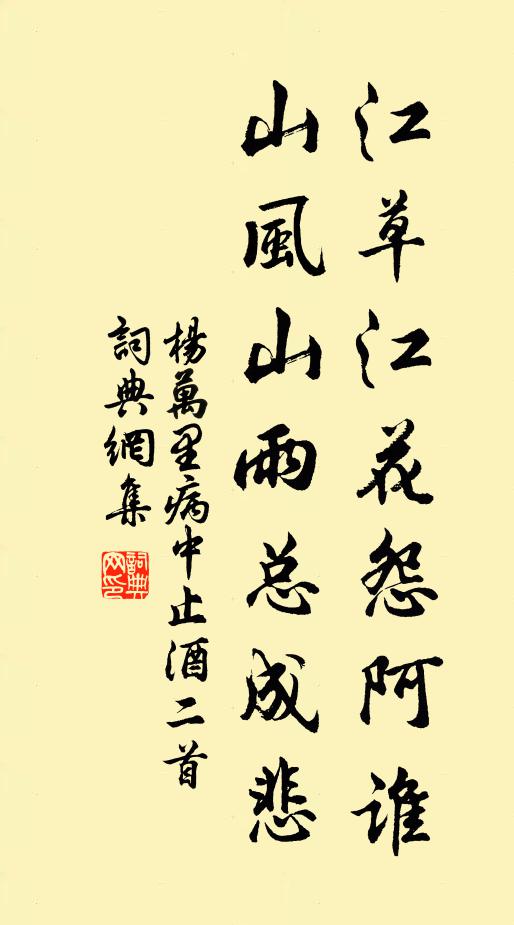 江草江花怨阿谁
山風山雨总成悲
楊萬里病中止酒二首
詞典網集
詞典网印